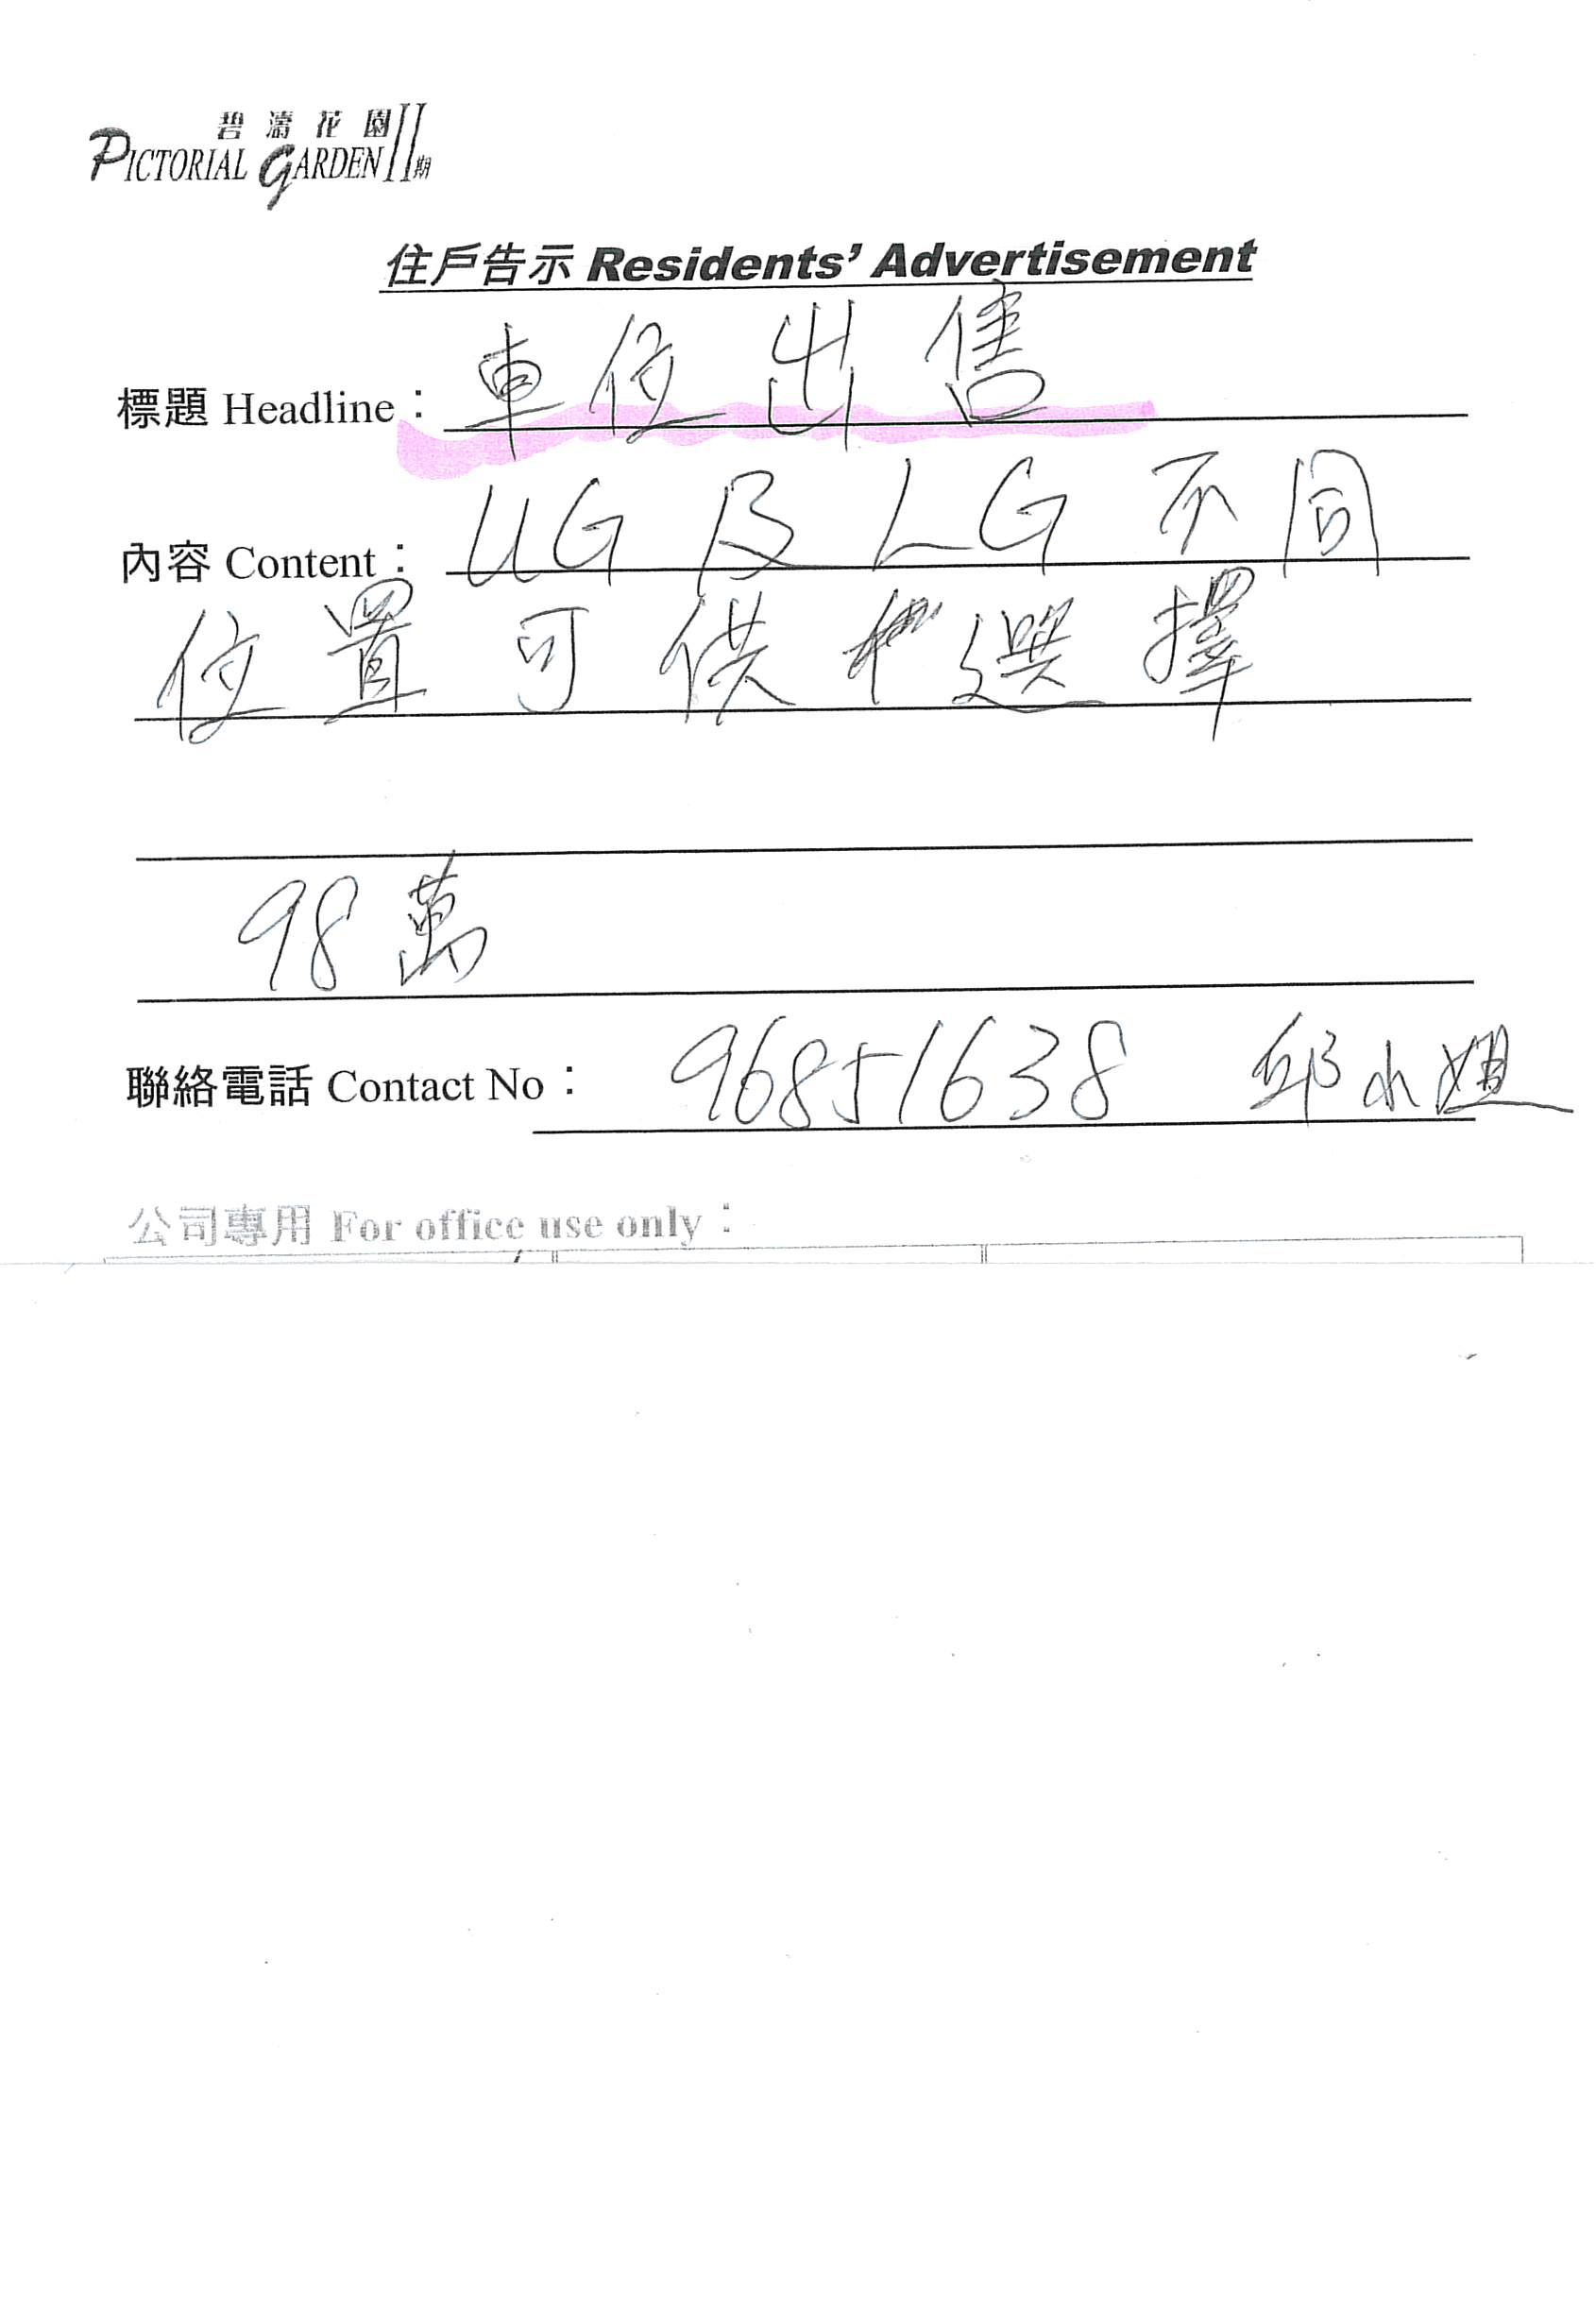 碧濤花園II期
PICTORIAL GARDEN
住戶告示 Residents' Advertisement
標題 Headline：車位出售
內容 Content：UG 及 LG 不同
位置可供選擇
98萬
聯絡電話 Contact No：96851638 邱小姐
公司專用 For office use only：